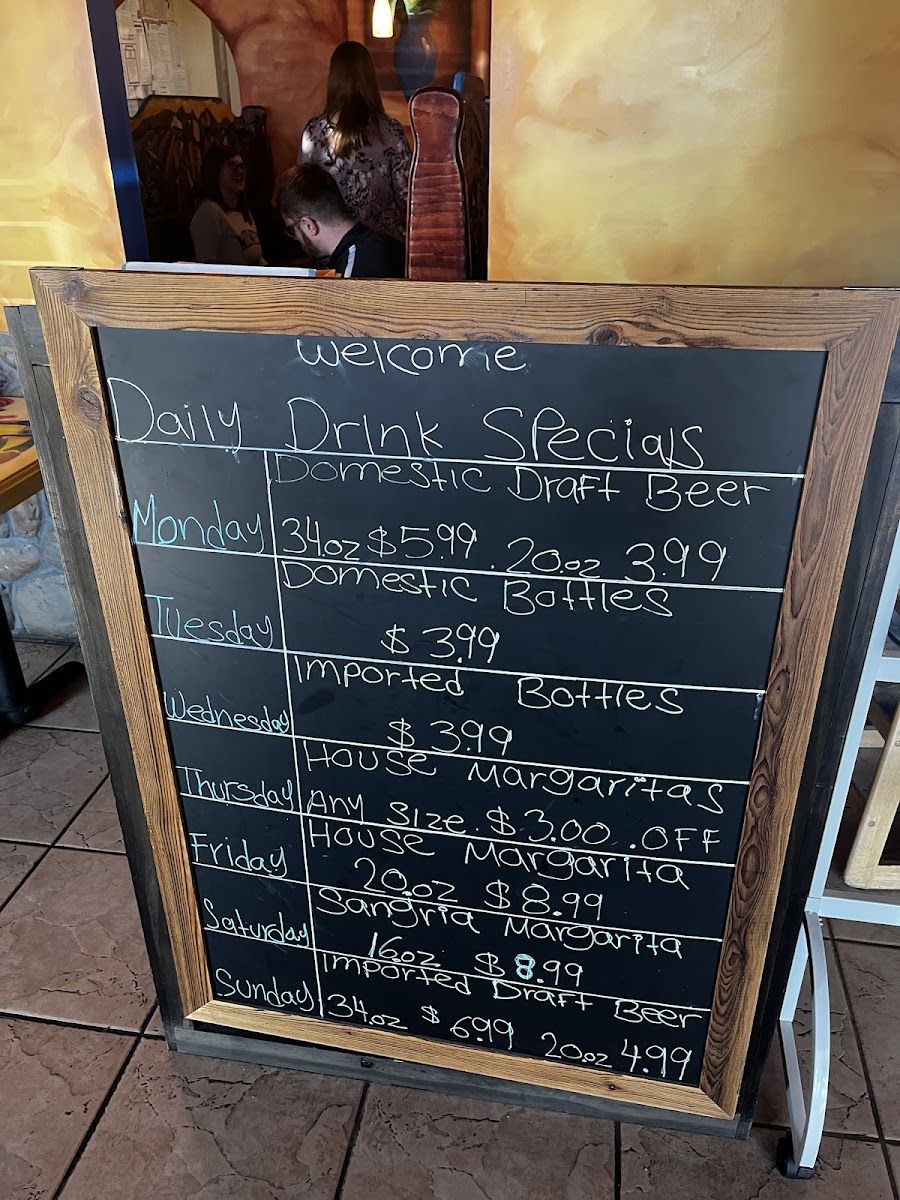 Welcome
Daily Drink Specials
Monday
Domestic Draft Beer
34oz $5.99 . 20oz 3.99
Tuesday
Domestic Bottles
$3.99
Wednesday
Imported Bottles
$3.99
Thursday
House Margaritas
Any Size $3.00 .OFF
Friday
House Margarita
20oz $8.99
Saturday
Sangria Margarita
16oz $8.99
Sunday
Imported Draft Beer
34oz $6.99 20oz 4.99